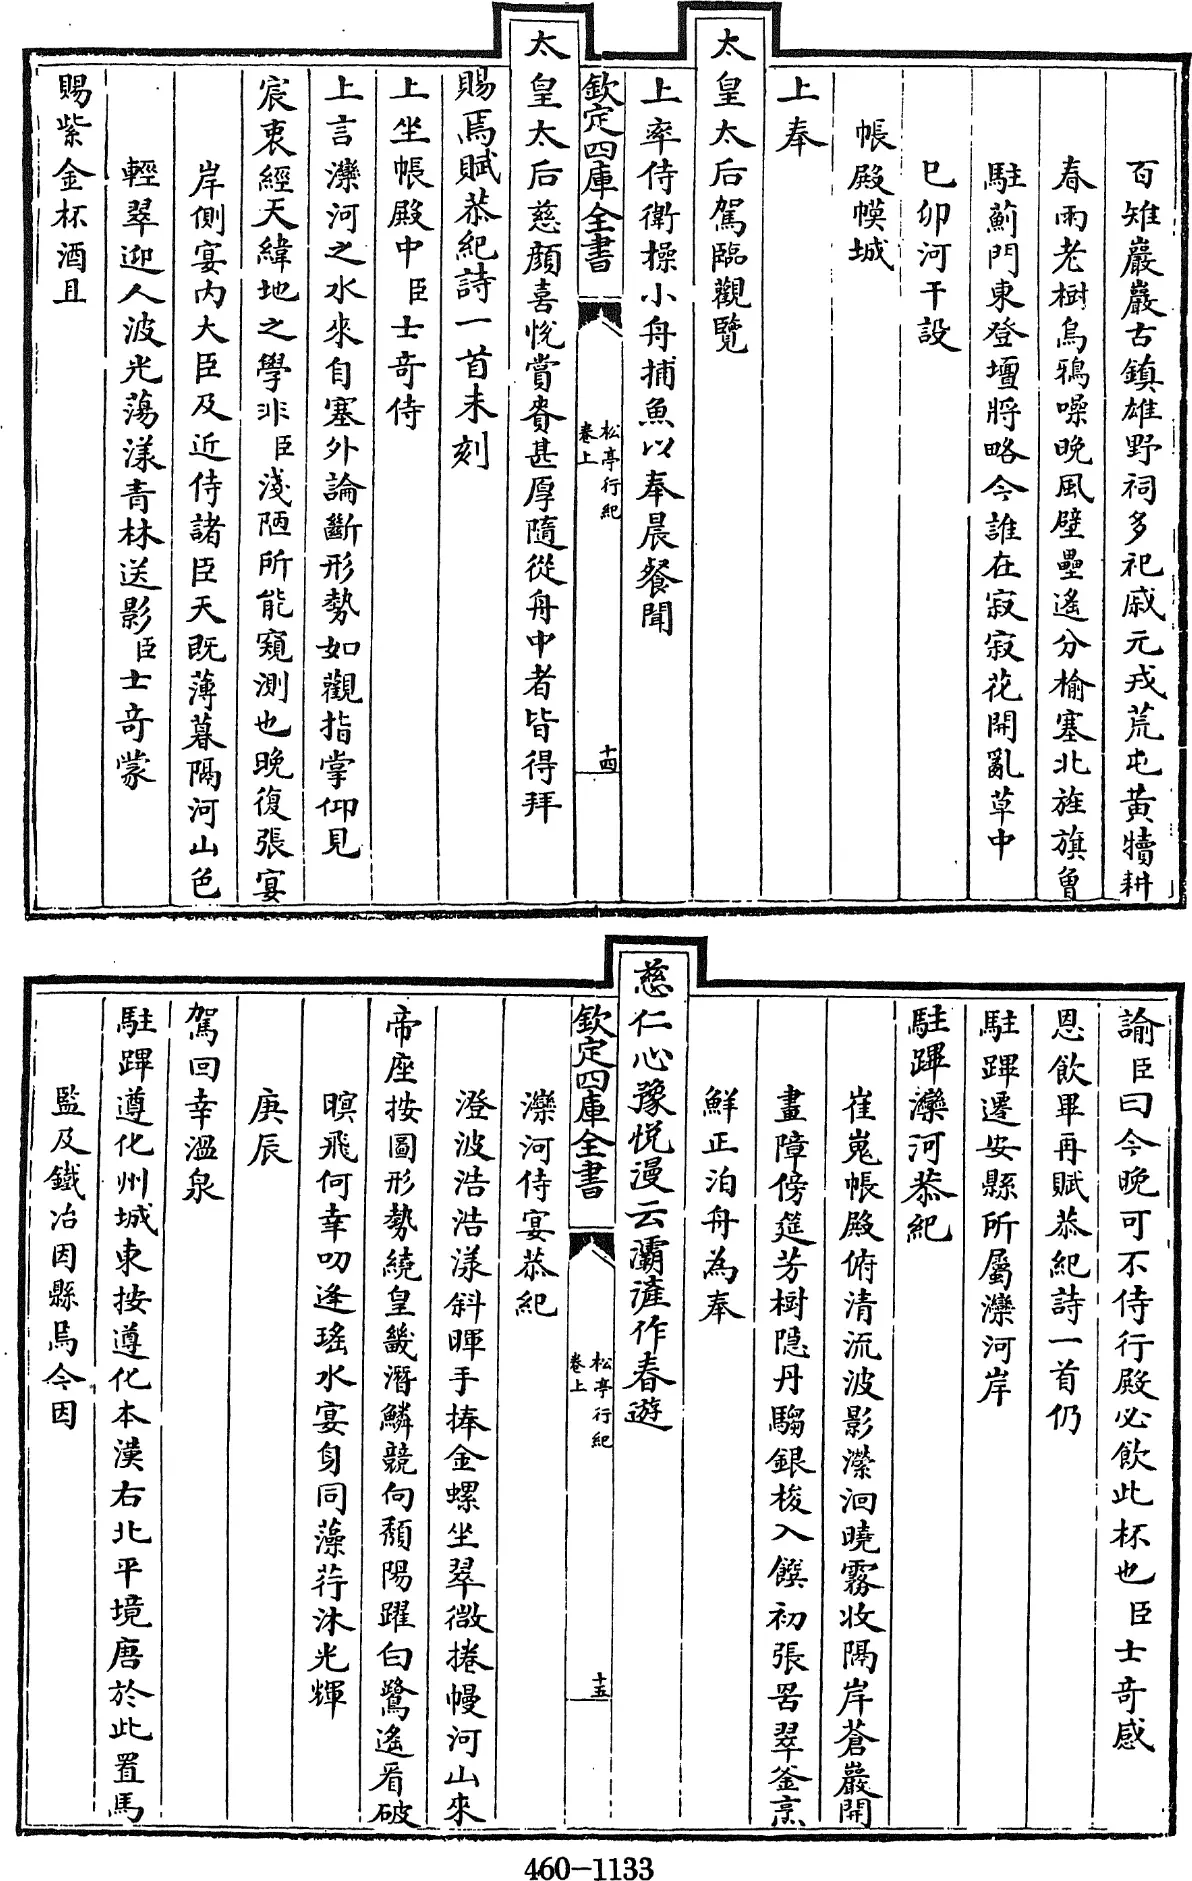 百雉巖巖古鎮雄野祠多祀戚元戎荒屯黄犢耕
春雨老樹烏鴉噪晚風壁壘遙分榆塞北旌旗曾
駐薊門東登壇將略今誰在寂寂花開亂草中
己卯河干設
帳殿幙城
上奉
太皇太后駕臨觀覽
上率侍衛操小舟捕魚以奉晨餐聞
欽定四庫全書
松亭行紀
卷上
十四
太皇太后慈顔喜悅賞賚甚厚隨從舟中者皆得拜
賜焉賦恭紀詩一首未刻
上坐帳殿中臣士奇侍
上言灤河之水來自塞外論斷形勢如觀指掌仰見
宸衷經天緯地之學非臣淺陋所能窺測也晚復張宴
岸側宴内大臣及近侍諸臣天既薄暮隔河山色
輕翠迎人波光蕩漾青林送影臣士奇蒙
賜紫金杯酒且
諭臣曰今晚可不侍行殿必飲此杯也臣士奇感
恩飲畢再賦恭紀詩一首仍
駐蹕遷安縣所屬灤河岸
駐蹕灤河恭紀
崔嵬帳殿俯清流波影濴洄曉霧收隔岸蒼巖開
畫障傍筵芳樹隠丹騶銀梭入饌初張罟翠釜烹
鮮正泊舟為奉
慈仁心豫悅漫云灞滻作春遊
欽定四庫全書
松亭行紀
卷上
十五
灤河侍宴恭紀
澄波浩浩漾斜暉手捧金螺坐翠微捲幔河山來
帝座按圖形勢繞皇畿潛鱗競向頽陽躍白鷺遙看破
暝飛何幸叨逢瑤水宴身同藻荇沐光輝
庚辰
駕回幸溫泉
駐蹕遵化州城東按遵化本漢右北平境唐於此置馬
監及鐵冶因縣焉今因
460-1133